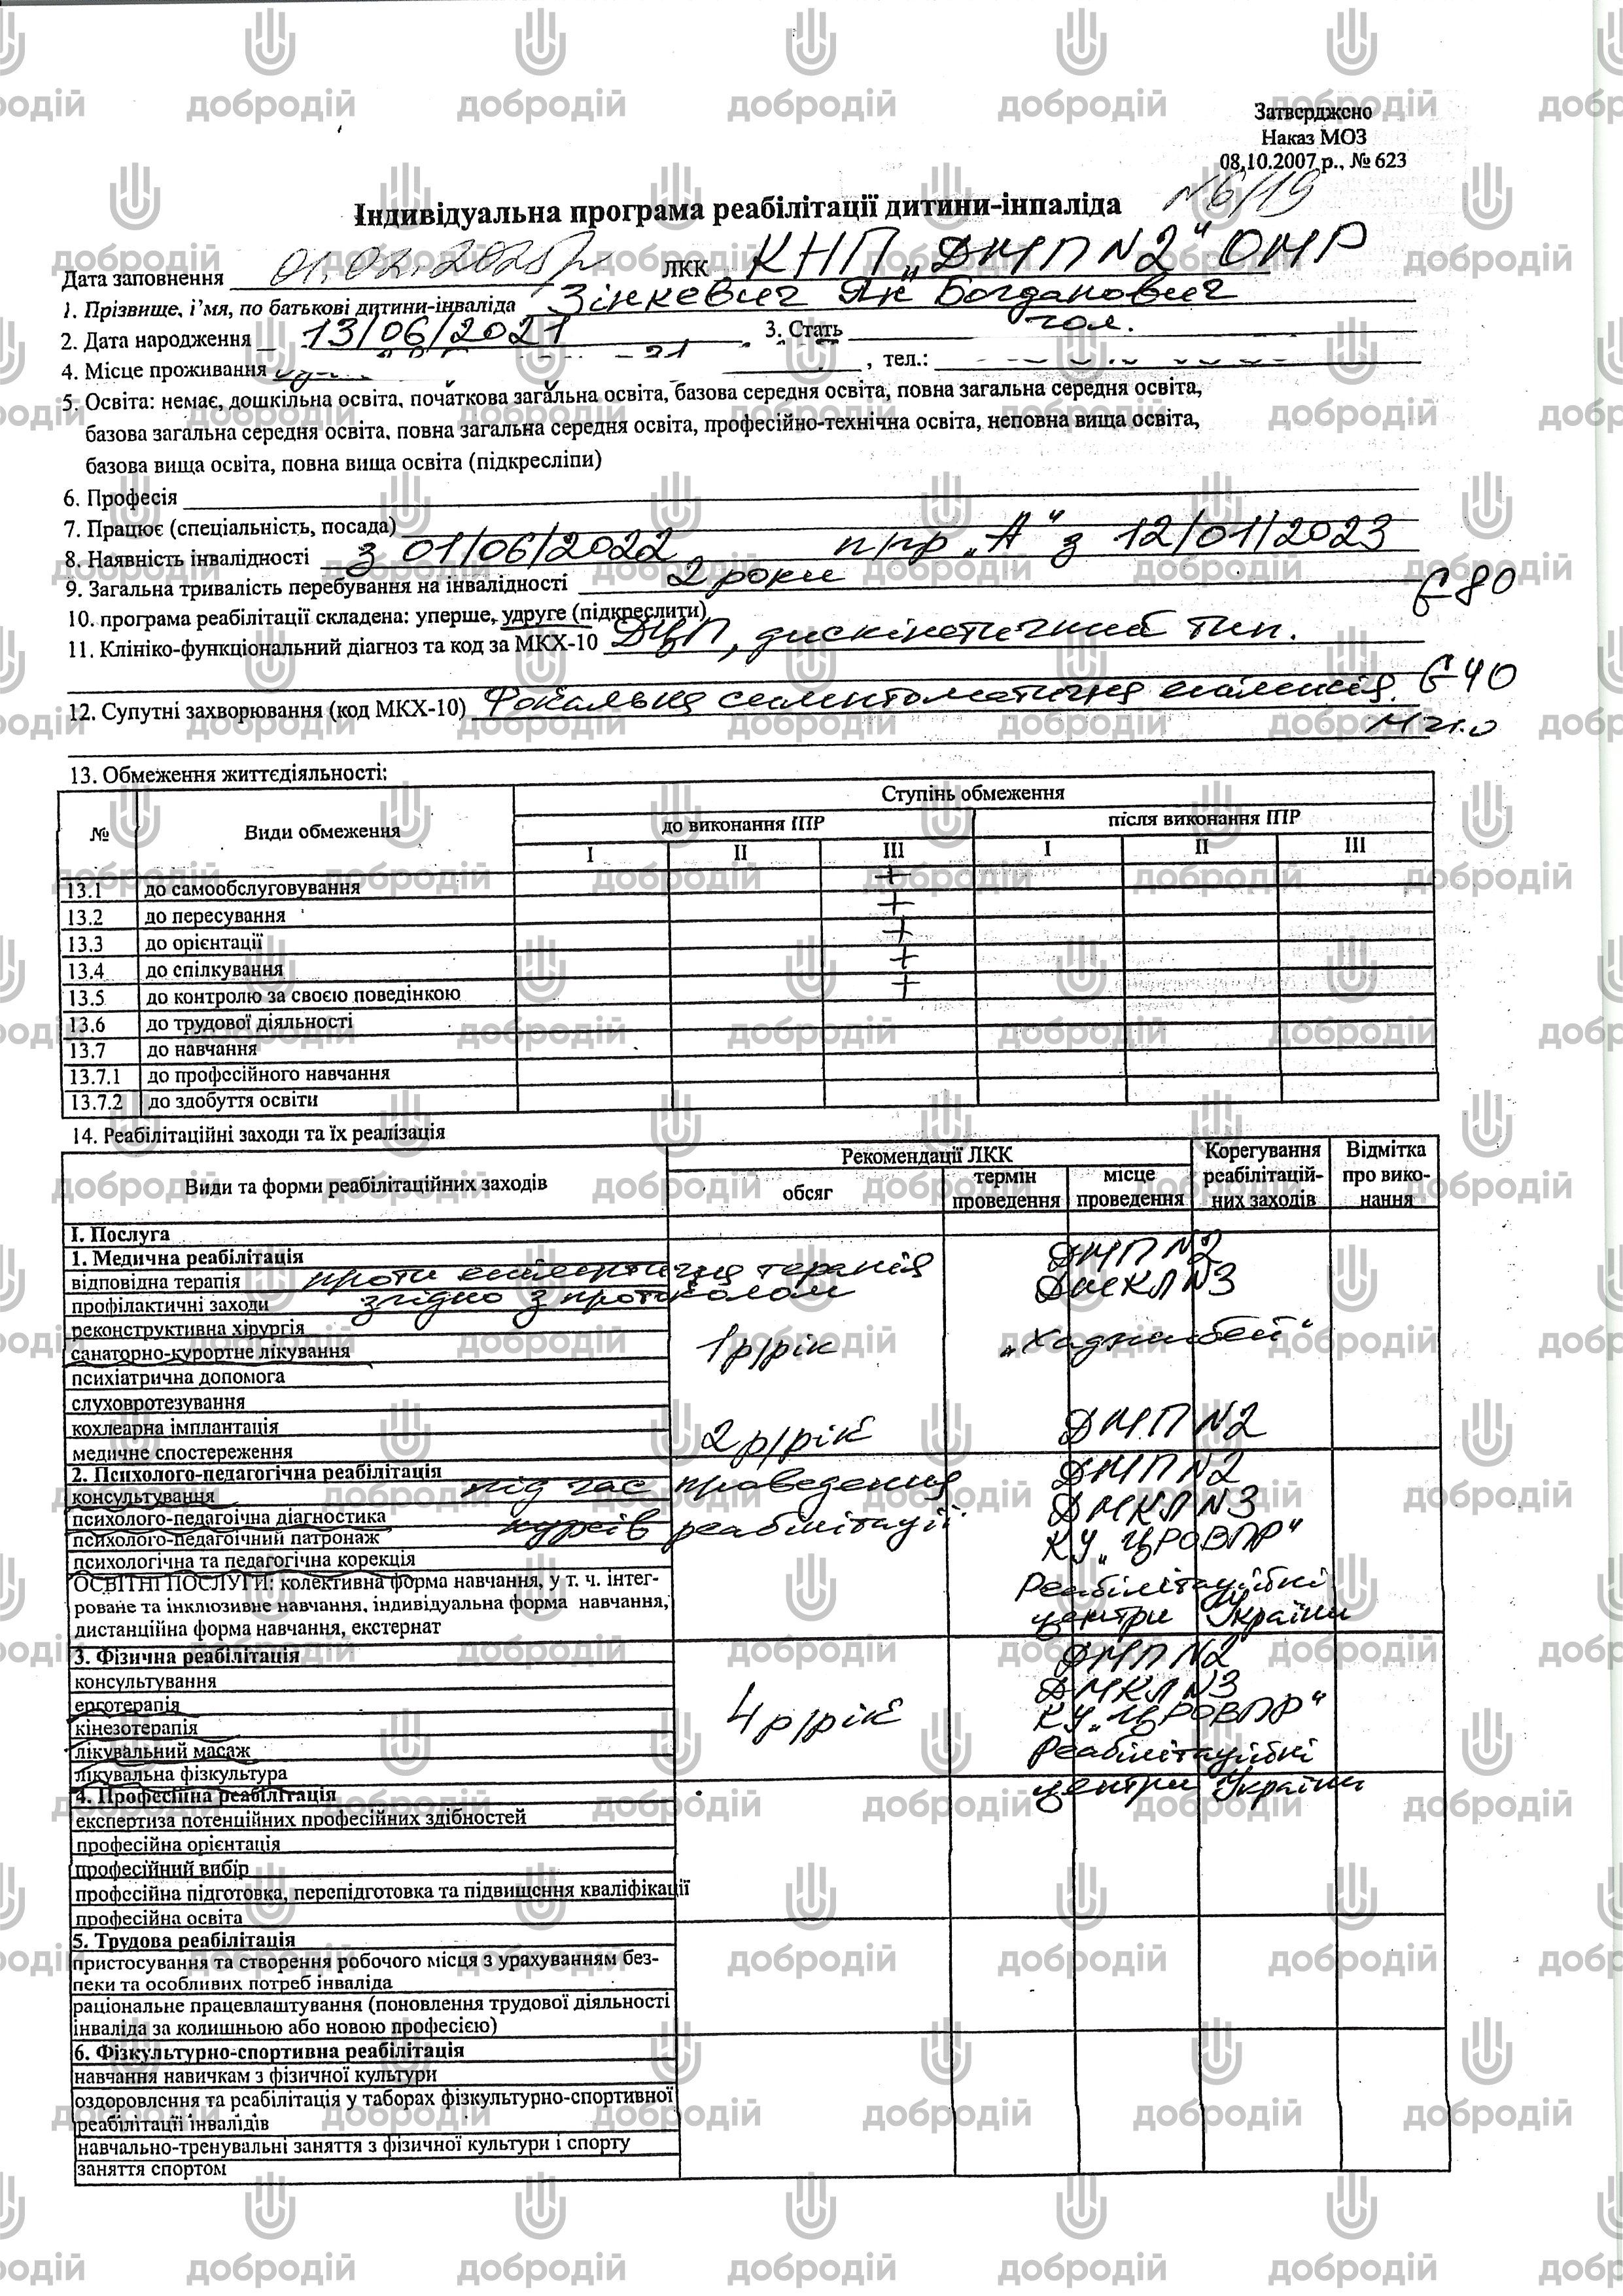 Затверджено
Наказ МОЗ
08.10.2007 р., № 623
N6/19
Індивідуальна програма реабілітації дитини-інпаліда
Дата заповнення 01.02.2023р ЛКК КНП „ДМП N2" ОМР
1. Прізвище, і’мя, по батькові дитини-інваліда Зінкевич Ян Богданович
2. Дата народження 13/06/2021 3. Стать чол.
4. Місце проживання , тел.:
5. Освіта: немає, дошкільна освіта, початкова загальна освіта, базова середня освіта, повна загальна середня освіта,
базова загальна середня освіта, повна загальна середня освіта, професійно-технічна освіта, неповна вища освіта,
базова вища освіта, повна вища освіта (підкресліпи)
6. Професія
7. Працює (спеціальність, посада)
8. Наявність інвалідності з 01/06/2022 п/гр „А" з 12/01/2023
9. Загальна тривалість перебування на інвалідності 2 роки
10. програма реабілітації складена: уперше, удруге (підкреслити) G80
11. Клініко-функціональний діагноз та код за МКХ-10 ДЦП, дискінетичний тип.
12. Супутні захворювання (код МКХ-10) Фокальна епілепсія. G40
13. Обмеження життєдіяльності:
№ Види обмеження Ступінь обмеження
до виконання ІПР після виконання ІПР
I II III I II III
13.1 до самообслуговування +
13.2 до пересування +
13.3 до орієнтації +
13.4 до спілкування +
13.5 до контролю за своєю поведінкою +
13.6 до трудової діяльності
13.7 до навчання
13.7.1 до професійного навчання
13.7.2 до здобуття освіти
14. Реабілітаційні заходи та їх реалізація
Види та форми реабілітаційних заходів Рекомендації ЛКК Корегування реабілітацій- них заходів Відмітка про вико- нання
обсяг термін проведення місце проведення
I. Послуга
1. Медична реабілітація ДМП N2
відповідна терапія проти епілептична терапія ДМКЛ N3
профілактичні заходи згідно з протоколом
реконструктивна хірургія
санаторно-курортне лікування 1р/рік „Хаджибей"
психіатрична допомога
слуховротезування
кохлеарна імплантація
медичне спостереження 2р/рік ДМП N2
2. Психолого-педагогічна реабілітація ДМП N2
консультування під час проведення ДМКЛ N3
психолого-педагоічна діагностика курсів реабілітації
психолого-педагогічний патронаж КУ „ЦРОВПР"
психологічна та педагогічна корекція
ОСВІТНІ ПОСЛУГИ: колективна форма навчання, у т. ч. інтег- Реабілітаційні
роване та інклюзивне навчання, індивідуальна форма навчання, центри України
дистанційна форма навчання, екстернат
3. Фізична реабілітація ДМП N2
консультування ДМКЛ N3
ерготерапія 4р/рік КУ „ЦРОВПР"
кінезотерапія
лікувальний масаж Реабілітаційні
лікувальна фізкультура центри України
4. Професійна реабілітація
експертиза потенційних професійних здібностей
професійна орієнтація
професійний вибір
професійна підготовка, перепідготовка та підвищення кваліфікації
професійна освіта
5. Трудова реабілітація
пристосування та створення робочого місця з урахуванням без-
пеки та особливих потреб інваліда
раціональне працевлаштування (поновлення трудової діяльності
інваліда за колишньою або новою професією)
6. Фізкультурно-спортивна реабілітація
навчання навичкам з фізичної культури
оздоровлення та реабілітація у таборах фізкультурно-спортивної
реабілітації інвалідів
навчально-тренувальні заняття з фізичної культури і спорту
заняття спортом
добродій